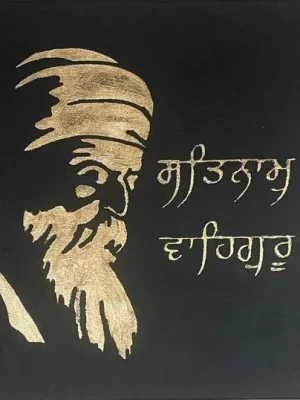 ਸਤਿਨਾਮੁ
ਵਾਹਿਗੁਰੂ